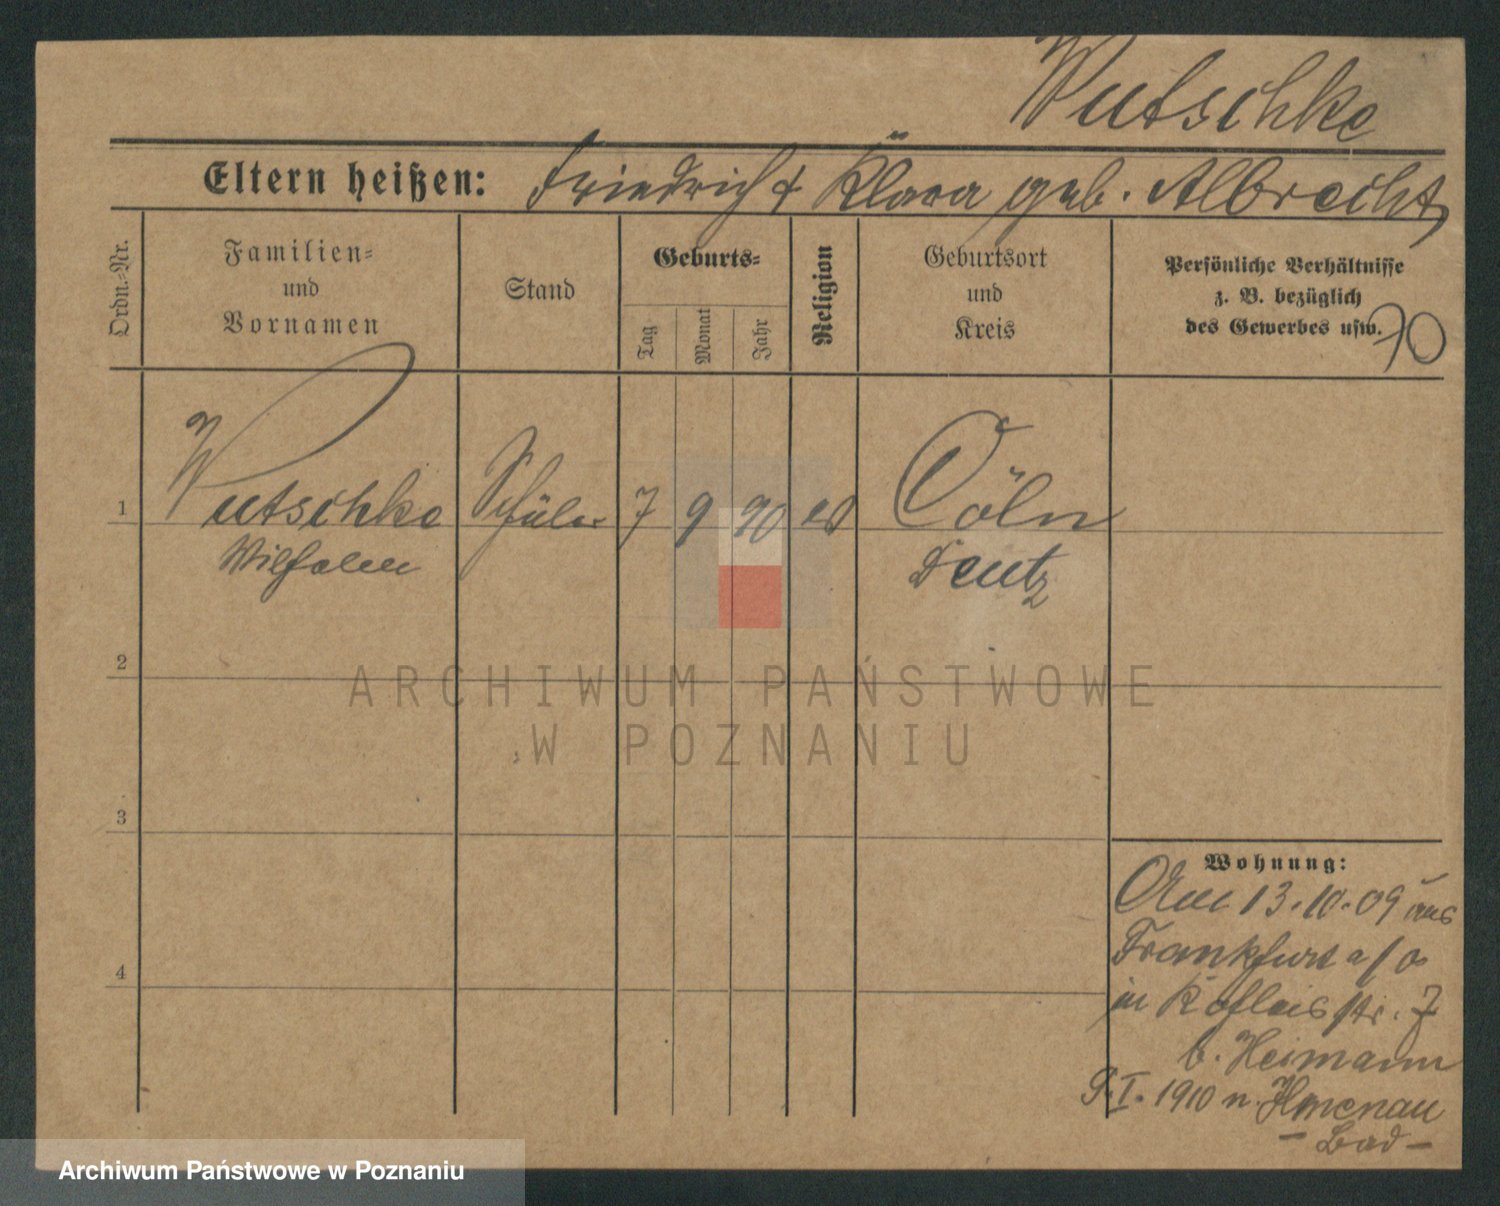 Wutschke
Eltern heißen: Friedrich & Klara geb. Albrecht
Ordn.-Nr.
Familien-
und
Vornamen
Stand
Geburts-
Tag
Monat
Jahr
Religion
Geburtsort
und
Kreis
Persönliche Verhältnisse
z. B. bezüglich
des Gewerbes usw.
70
1 Wutschke Schüler 7 9 90 ev Cöln
Wilhelm Deutz
2
3
4
Wohnung:
Am 13.10.09 aus
Frankfurt a/o
in 7
b. Heimann
I. 1910 n. Ilmenau
Bad
ARCHIWUM PAŃSTWOWE
W POZNANIU
Archiwum Państwowe w Poznaniu